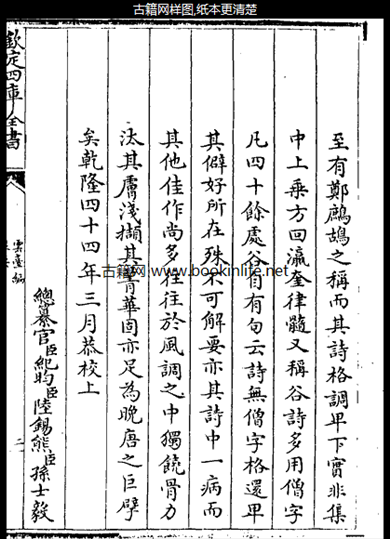 古籍网样图,纸本更清楚
至有鄭鷓鴣之稱而其詩格調卑下實非集
中上乗方回瀛奎律髓又稱谷詩多用僧字
凡四十餘處谷自有句云詩無僧字格還卑
其僻好所在殊不可解要亦其詩中一病而
其他佳作尚多往往於風調之中獨饒骨力
汰其膚淺擷其菁華固亦足為晩唐之巨擘
矣乾隆四十四年三月恭校上
總纂官臣紀昀臣陸錫熊臣孫士毅
欽定四庫全書
雲臺編
二
古籍网 www.bookinlife.net